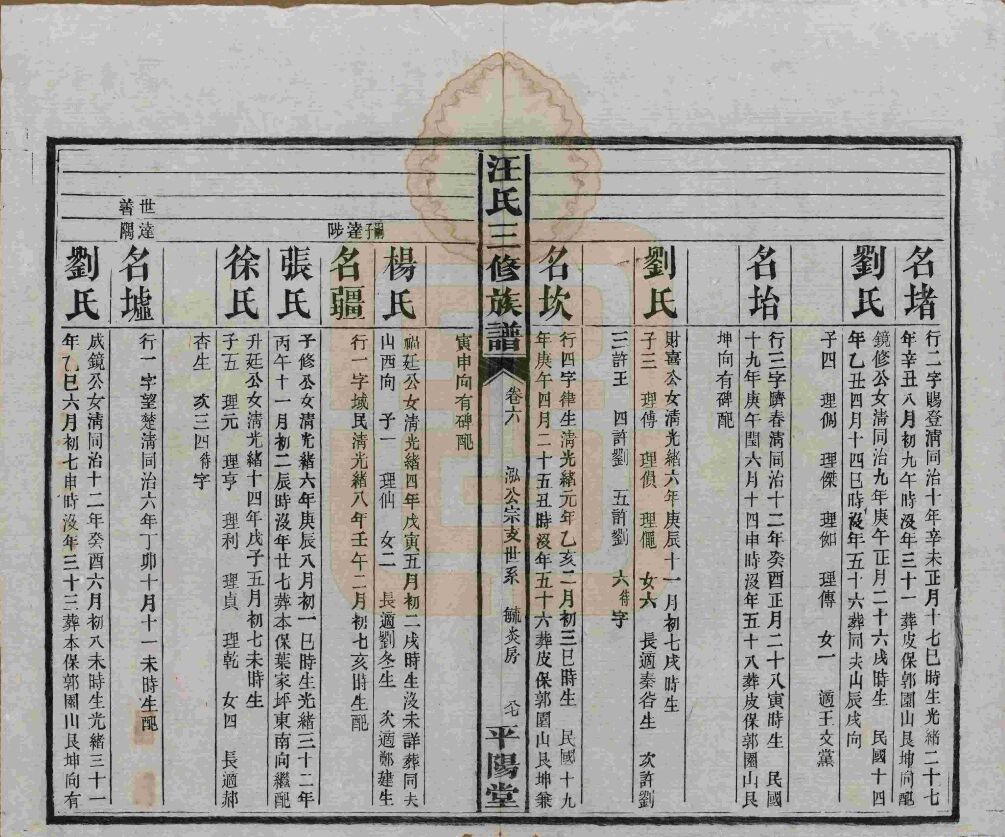 名堵
行二字賜登淸同治十年辛未正月十七巳時生光緒二十七
年辛丑八月初九午時沒年三十一葬皮保郭園山艮坤向配
劉氏
鏡修公女淸同治九年庚午正月二十六戌時生 民國十四
年乙丑四月十四巳時沒年五十六葬同夫山辰戌向
子四 理倜 理傑 理卹 理傳 女一 適王文黨
名坮
行三字臍春淸同治十二年癸酉正月二十八寅時生 民國
十九年庚午閏六月十四申時沒年五十八葬皮保郭園山艮
坤向有碑配
劉氏
財喜公女淸光緒六年庚辰十一月初七戌時生
子三 理傅 理偵 理儷 女六 長適秦谷生 次許劉
三許王 四許劉 五許劉 六待字
名坎
行四字律生淸光緒元年乙亥二月初三巳時生 民國十九
年庚午四月二十五丑時沒年五十六葬皮保郭園山艮坤兼
寅申向有碑配
汪氏三修族譜
卷六 泓公宗支世系 毓炎房
平陽堂
楊氏
福廷公女淸光緒四年戊寅五月初二戌時生沒未詳葬同夫
山酉向 子一 理仙 女二 長適劉冬生 次適鄭建生
達陟子
名疆
行一字域民淸光緒八年壬午二月初七亥時生配
張氏
予修公女淸光緒六年庚辰八月初一巳時生光緒三十二年
丙午十一月初二辰時沒年廿七葬本保葉家坪東南向繼配
徐氏
升廷公女淸光緒十四年戊子五月初七未時生
子五 理元 理亨 理利 理貞 理乾 女四 長適郝
杏生 次三四待字
世達
著隅
名墟
行一字望楚淸同治六年丁卯十月十一未時生配
劉氏
咸鏡公女淸同治十二年癸酉六月初八未時生光緒三十一
年乙巳六月初七申時沒年三十三葬本保郭園山艮坤向有